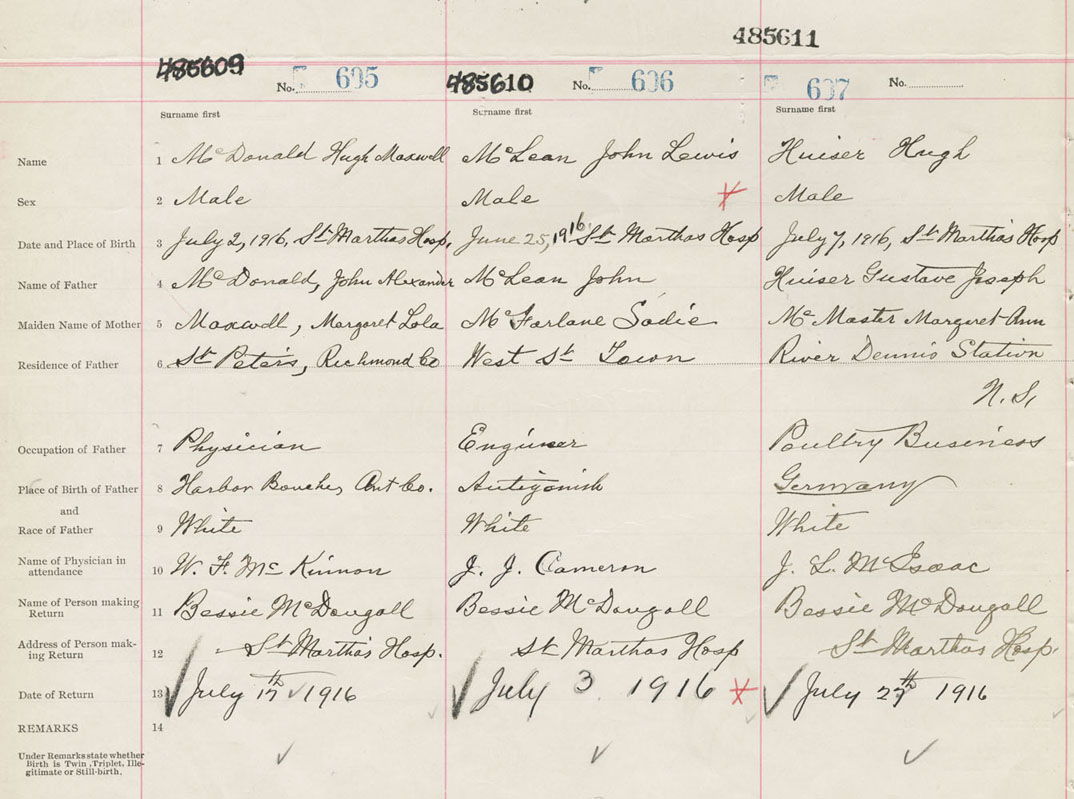 485611
485609 No. 605 485610 No. 606 607 No.
Surname first Surname first Surname first
Name 1 McDonald Hugh Maxwell McLean John Lewis Huiser Hugh
Sex 2 Male Male Male
Date and Place of Birth 3 July 2, 1916, St Marthas Hosp, June 25, 1916 St Marthas Hosp July 7, 1916, St Martha's Hosp
Name of Father 4 McDonald, John Alexander McLean John Huiser Gustave Joseph
Maiden Name of Mother 5 Maxwell, Margaret Lola McFarlane Sadie McMaster Margaret Ann
Residence of Father 6 St Peters, Richmond Co West St Town River Dennis Station
N.S,
Occupation of Father 7 Physician Engineer Poultry Business
Place of Birth of Father 8 Harbor Bouche, Ant Co. Antigonish Germany
and
Race of Father 9 White White White
Name of Physician in
attendance 10 W. F. McKinnon J. J. Cameron J. L. McIsaac
Name of Person making
Return 11 Bessie McDougall Bessie McDougall Bessie McDougall
Address of Person mak-
ing Return 12 St Martha's Hosp. St Marthas Hosp St Marthas Hosp.
Date of Return 13 July 17th 1916 July 3 1916 July 27th 1916
REMARKS 14
Under Remarks state whether
Birth is Twin, Triplet, Ille-
gitimate or Still-birth.